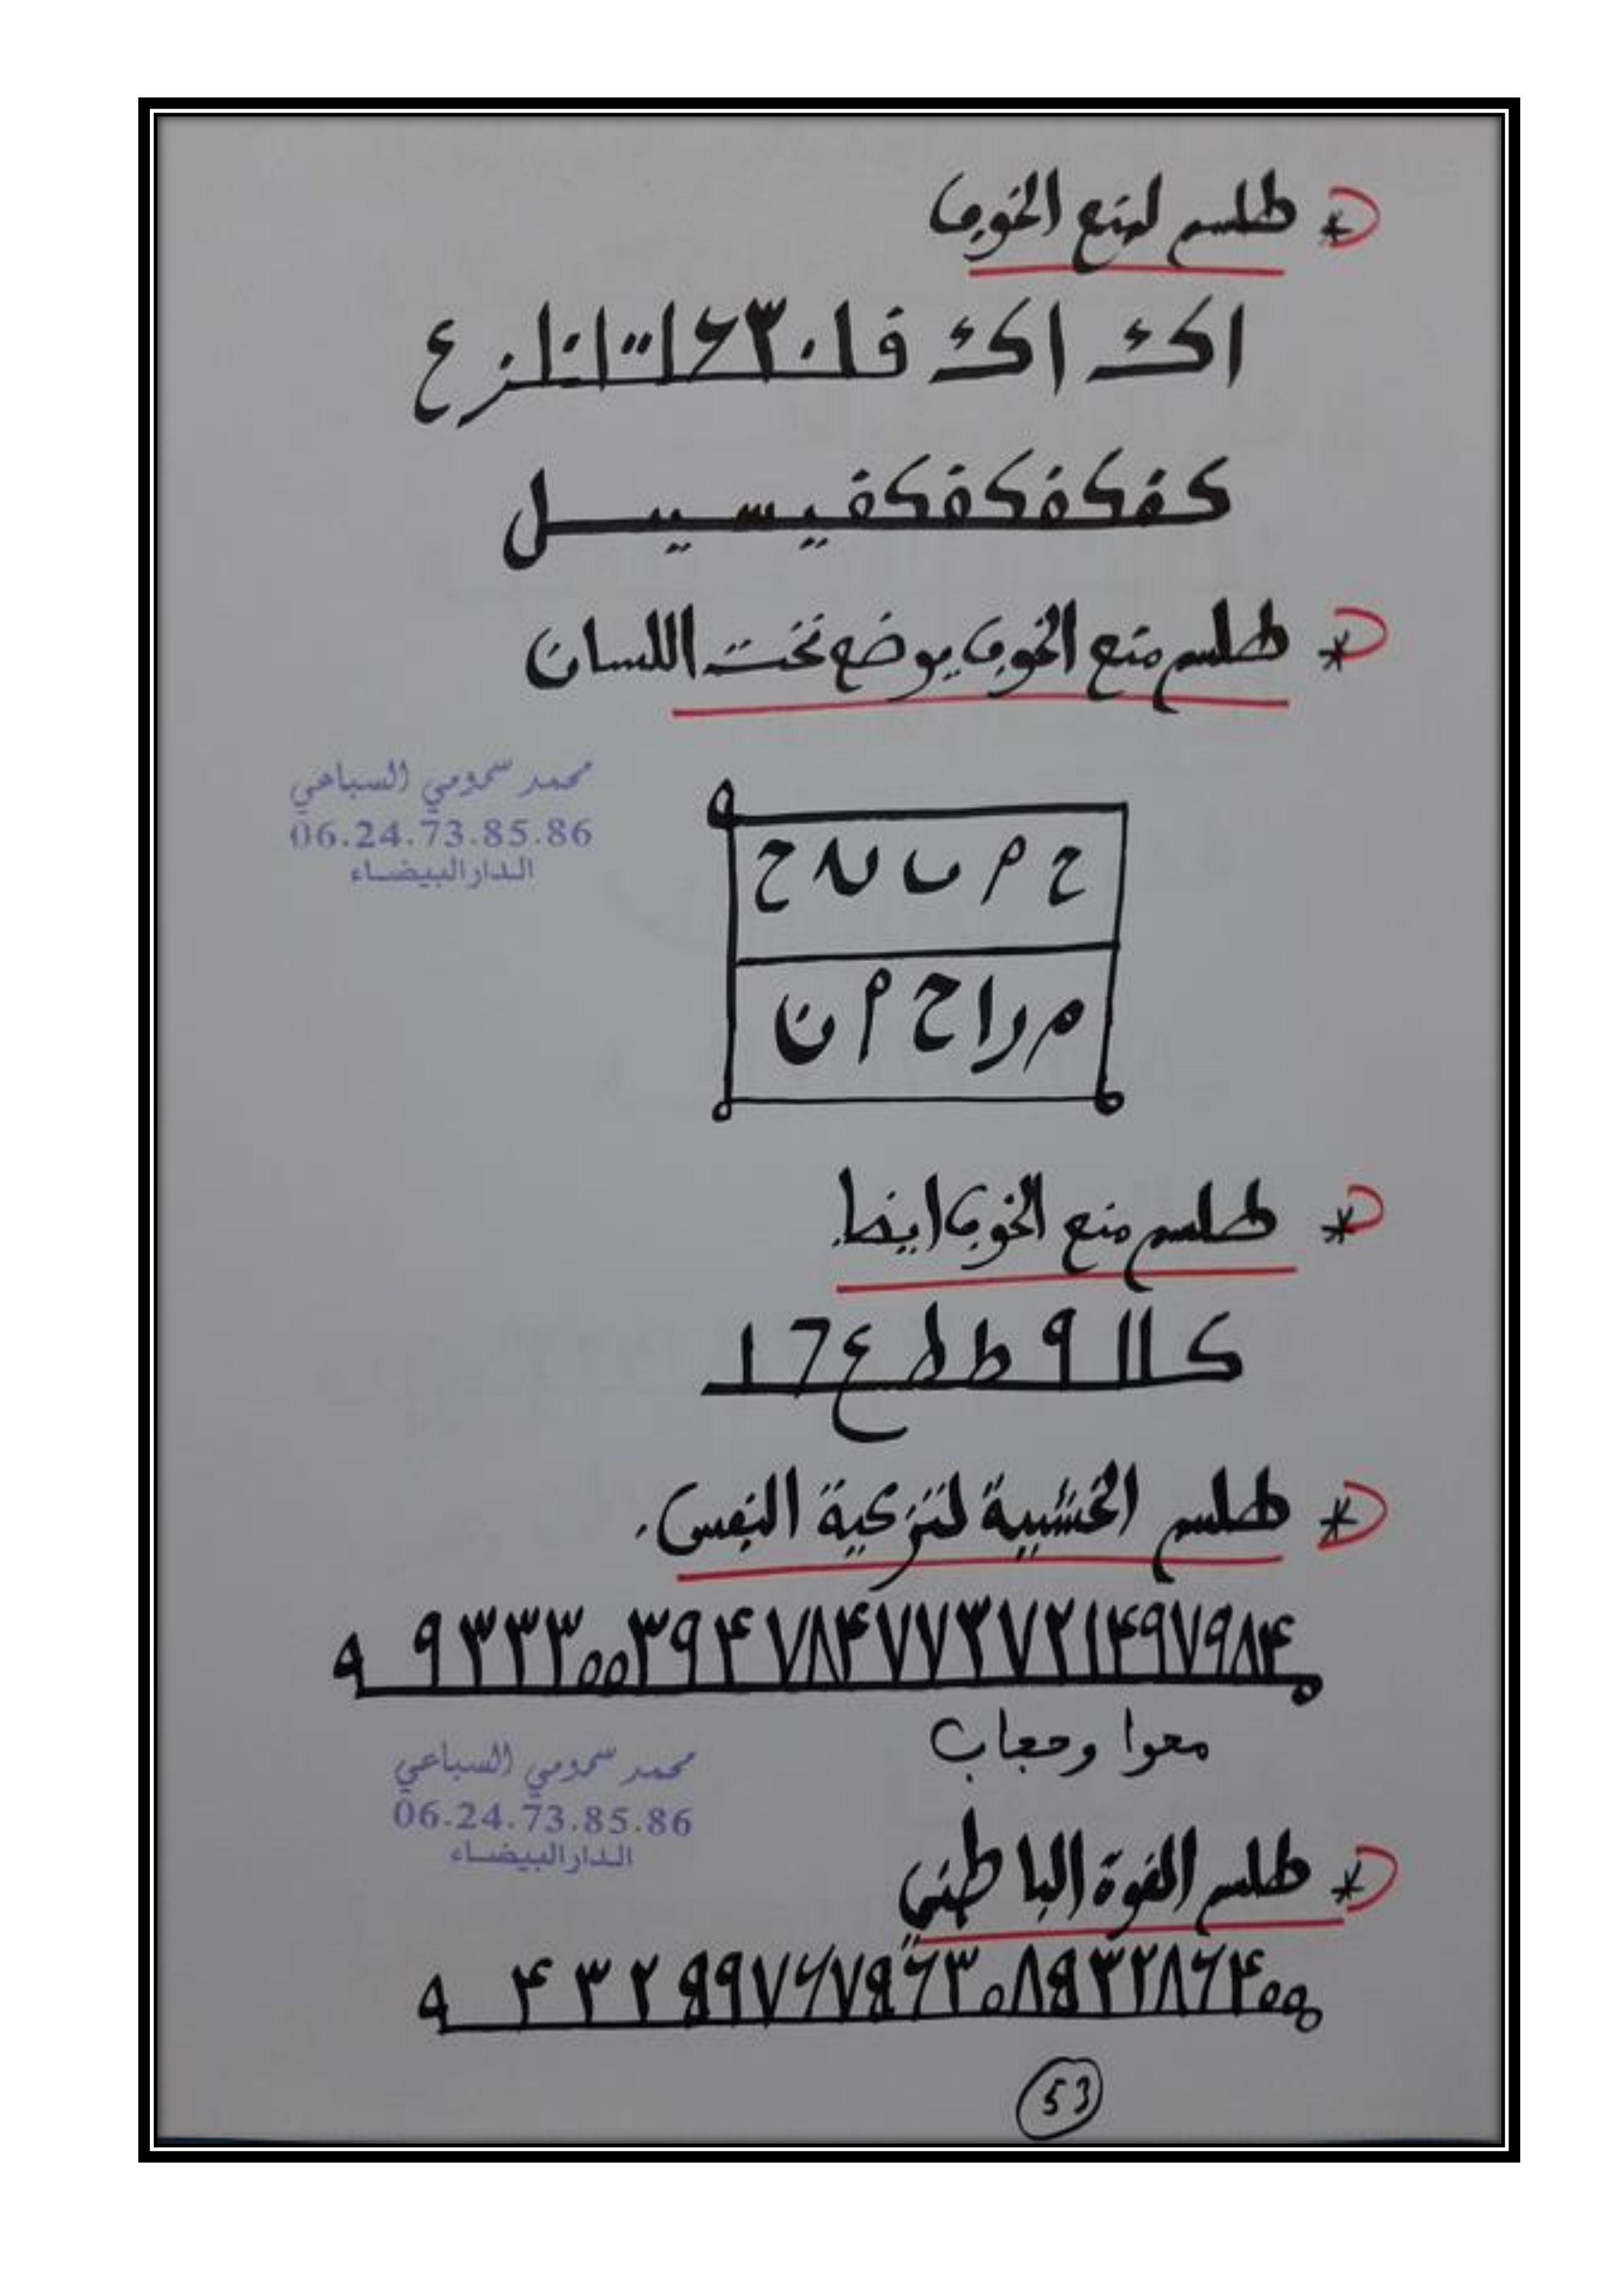 طلسم لمنع الخوف
اكـ اكـ فا
كفكفكفكفيسيل
طلسم منع الخوف يوضع تحت اللسان
محمد سمومي السباعي
06.24.73.85.86
الدار البيضاء
ح م
م ر ا ح م ن
طلسم منع الخوف ايضا
ك ا ا ٩ ط ط ع 7 ا
طلسم الخشية لتزكية النفس.
٩ ٣ ٣ ٣ ٥٥ ٣ ٩ ۴ ٧ ٨ ۴ ٧ ٧ ٣ ٧ ٢ ١ ۴ ٩ ٧ ٩ ٨ ۴
معوا وحجاب
محمد سمومي السباعي
06.24.73.85.86
الدار البيضاء
طلسم القوة الباطني
53